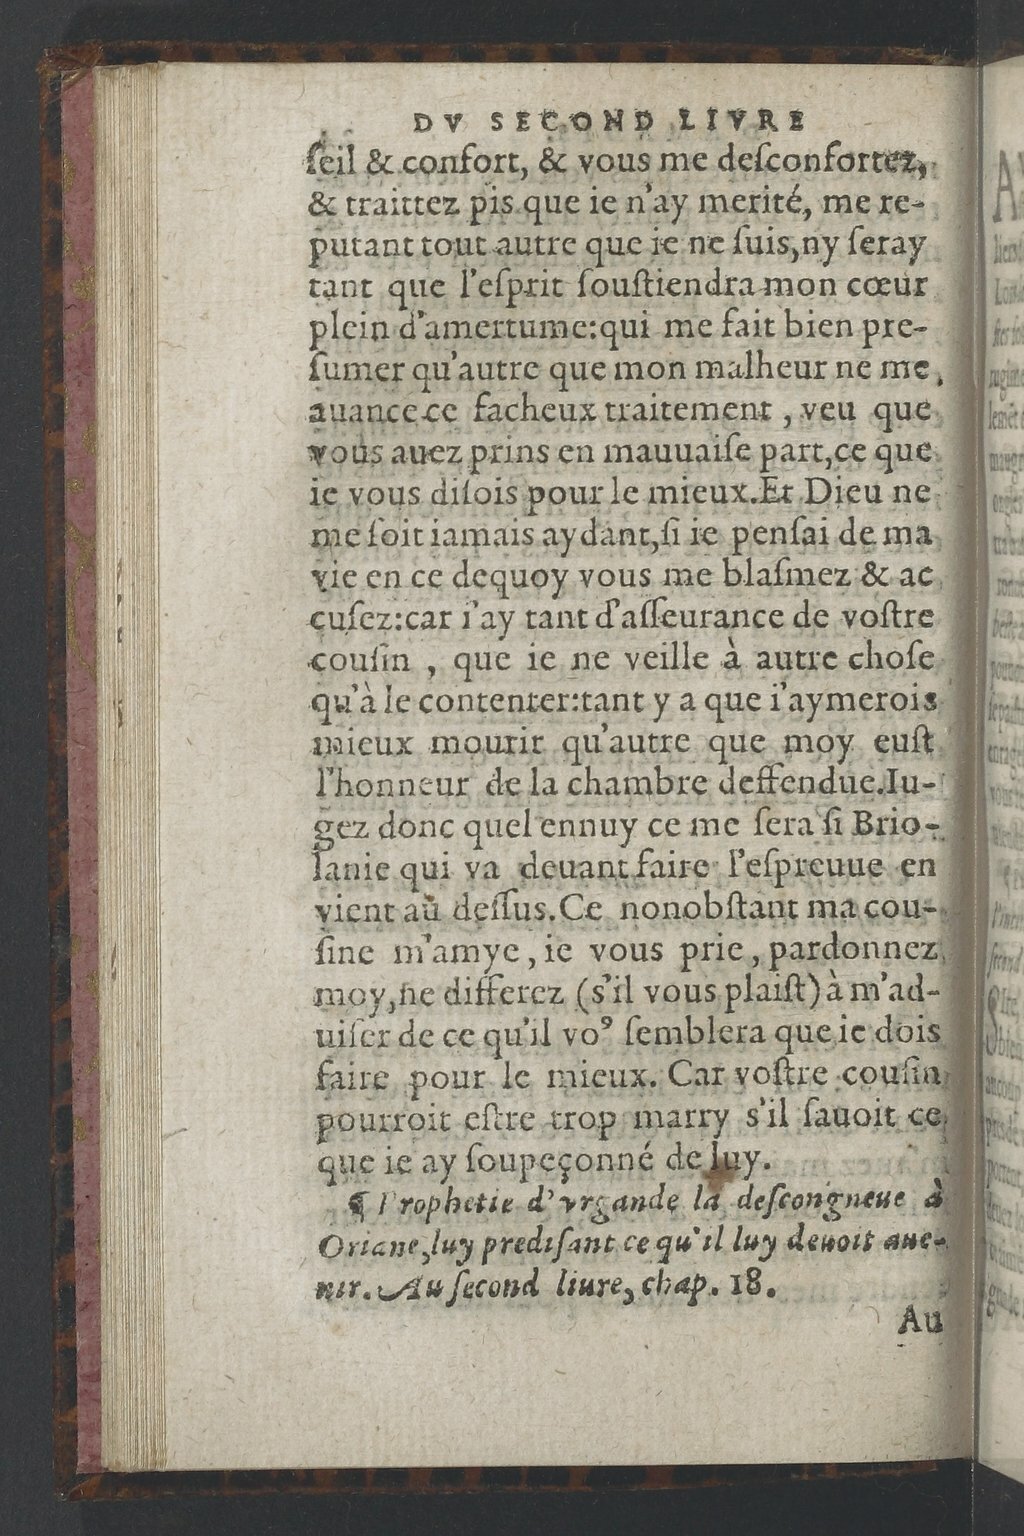 DV SECOND LIVRE
ſeil & confort, & vous me deſconfortez,
& traittez pis que ie n'ay merité, me re-
putant tout autre que ie ne ſuis,ny ſeray
tant que l'eſprit ſouſtiendra mon cœur
plein d'amertume:qui me fait bien pre-
ſumer qu'autre que mon malheur ne me
auance ce facheux traitement , veu que
vous auez prins en mauuaiſe part,ce que
ie vous diſois pour le mieux.Et Dieu ne
me ſoit iamais aydant,ſi ie penſai de ma
vie en ce dequoy vous me blaſmez & ac
cuſez:car i'ay tant d'aſſeurance de voſtre
couſin , que ie ne veille à autre choſe
qu'à le contenter:tant y a que i'aymerois
mieux mourir qu'autre que moy euſt
l'honneur de la chambre deffendue.Iu-
gez donc quel ennuy ce me ſera ſi Brio-
lanie qui va deuant faire l'eſpreuue en
vient au deſſus.Ce nonobſtant ma cou-
ſine m'amye , ie vous prie , pardonnez
moy,ne differez (s'il vous plaiſt) à m'ad-
uiſer de ce qu'il voꝰ ſemblera que ie dois
faire pour le mieux. Car voſtre couſin
pourroit eſtre trop marry s'il ſauoit ce
que ie ay ſoupeçonné de luy.
¶ Prophetie d'vrgande la deſcongneue à
Oriane,luy prediſant ce qu'il luy deuoit aue-
nir. Au ſecond liure, chap. 18.
Au